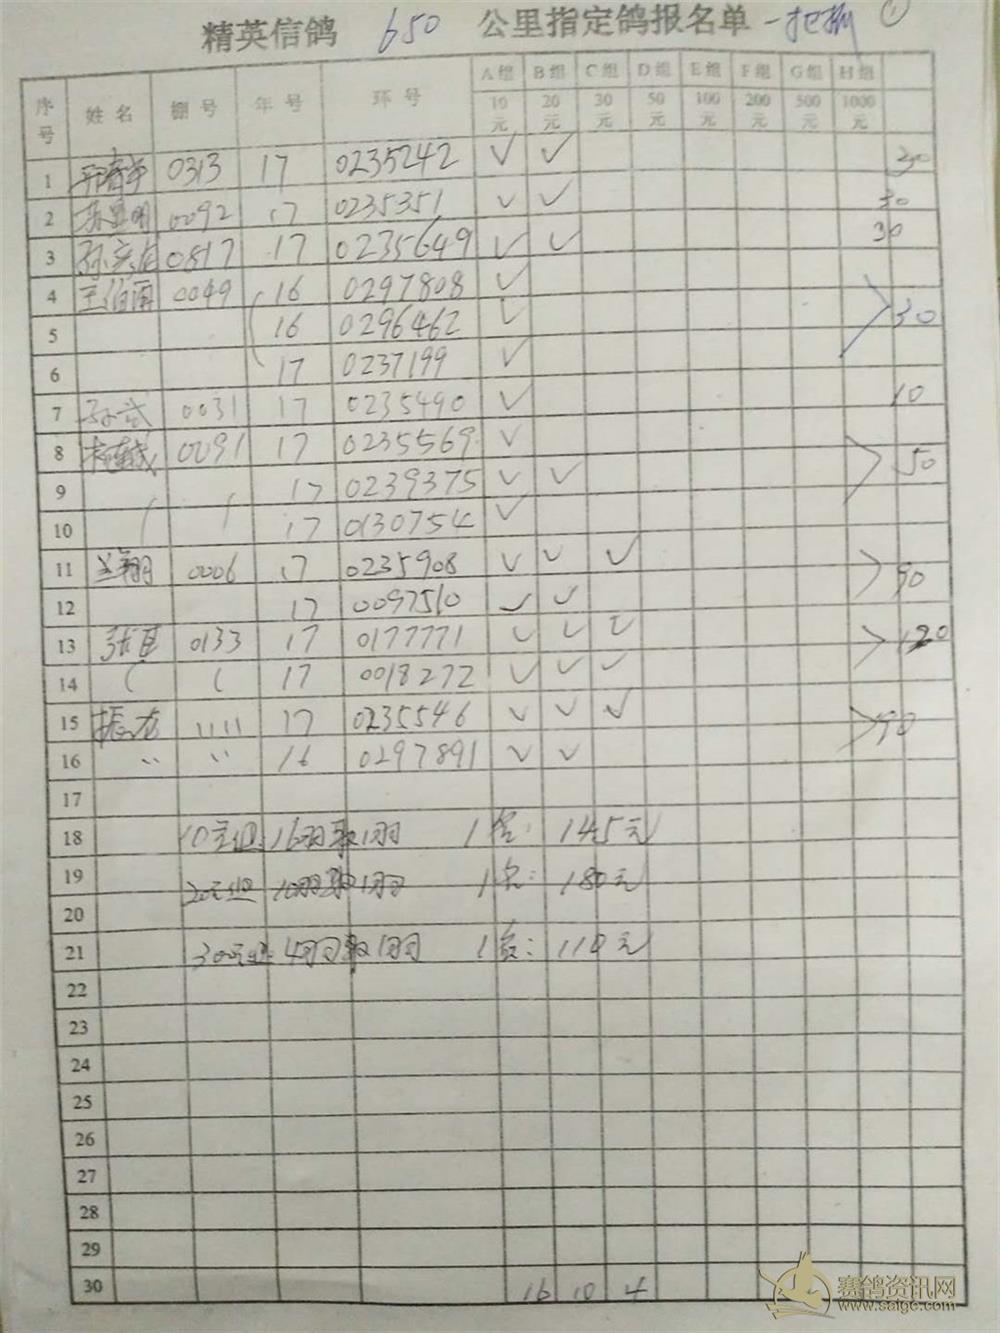 精英信鸽 650 公里指定鸽报名单 一把抓 ①
序号 姓名 棚号 年号 环号 A组 B组 C组 D组 E组 F组 G组 H组
10元 20元 30元 50元 100元 200元 500元 1000元
1 0313 17 0235242 ✓ ✓ 30
2 0092 17 0235351 ✓ ✓ 30
3 0817 17 0235649 ✓ ✓ 30
4 0049 16 0297808 ✓
5 16 0296462 ✓ 30
6 17 0237199 ✓
7 孙武 0031 17 0235490 ✓ 10
8 0091 17 0235569 ✓
9 17 0239375 ✓ ✓ 50
10 17 0130754 ✓
11 兰翔 0006 17 0235908 ✓ ✓ ✓
12 17 0097510 ✓ ✓ 90
13 0133 17 0177771 ✓ ✓ ✓ 120
14 17 0018272 ✓ ✓ ✓
15 振龙 1111 17 0235546 ✓ ✓ ✓ 90
16 〃 〃 16 0297891 ✓ ✓
17
18 10元组 16羽取1羽 1名: 145元
19 20元组 10羽取1羽 1名: 180元
20
21 30元组 4羽取1羽 1名: 110元
22
23
24
25
26
27
28
29
30 16 10 4
赛鸽资讯网
www.saige.com